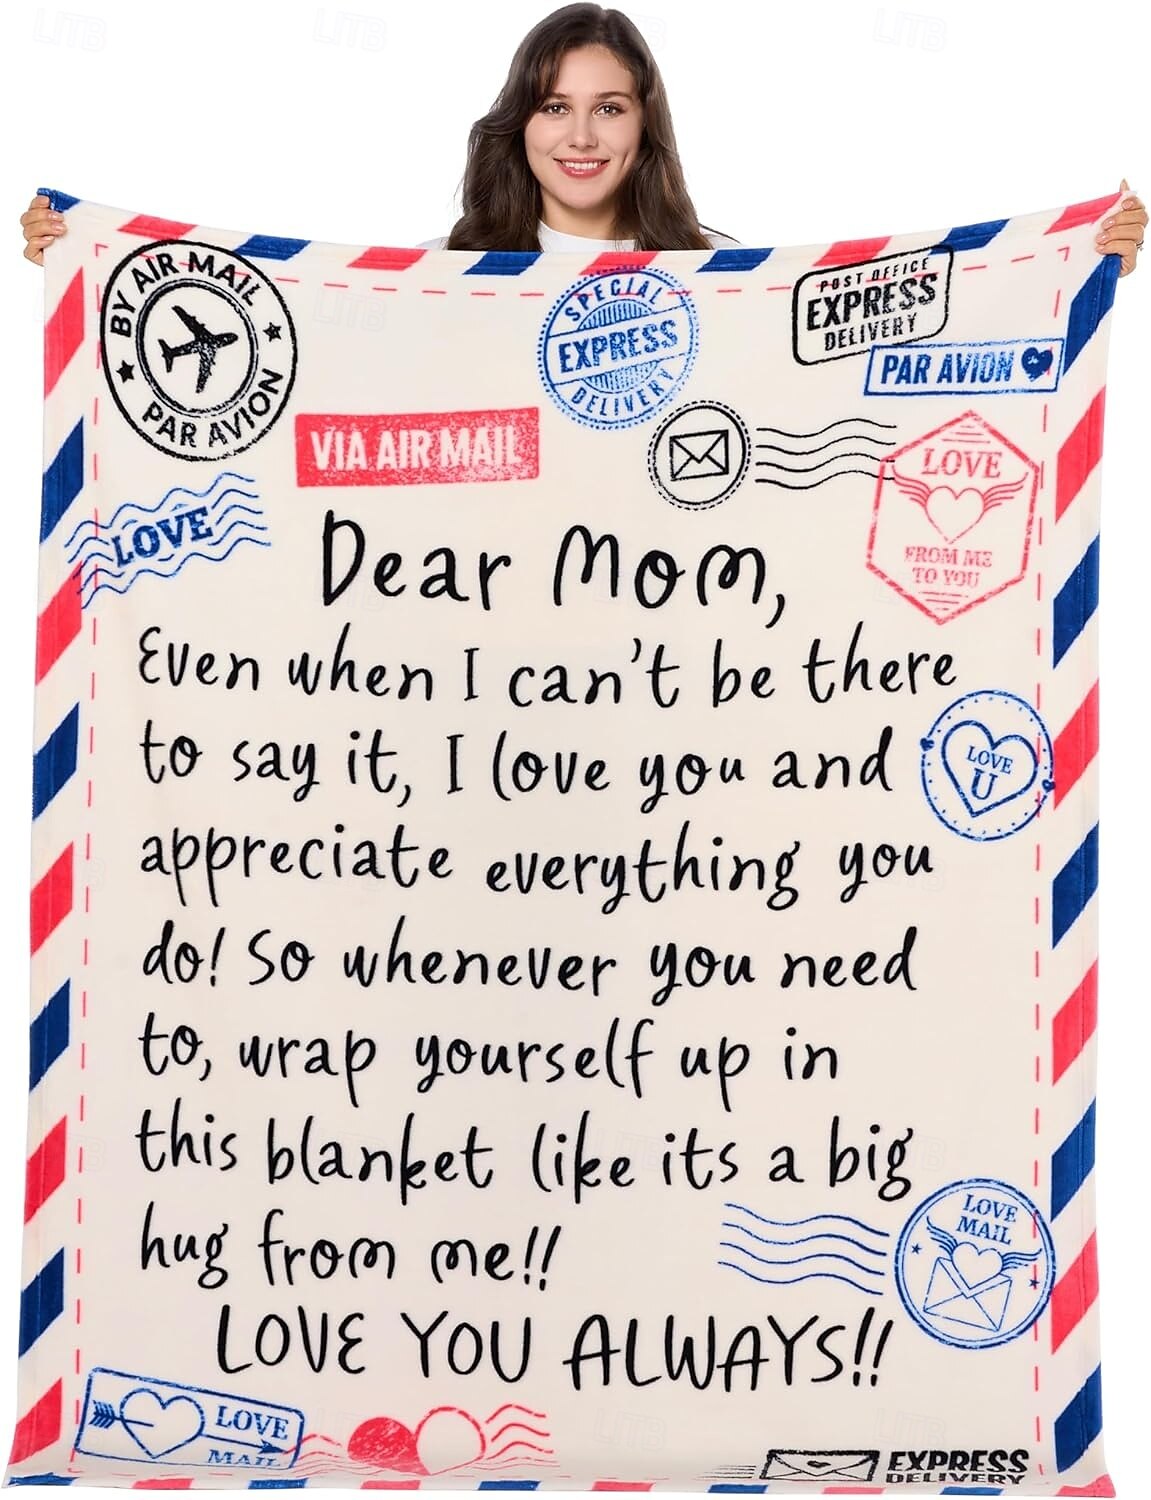 LITB
LITB
LITB
LITB
BY AIR MAIL
PAR AVION
SPECIAL
EXPRESS
DELIVERY
POST OFFICE
EXPRESS
DELIVERY
PAR AVION
VIA AIR MAIL
LOVE
FROM ME
TO YOU
LOVE
Dear Mom,
Even when I can't be there
to say it, I love you and
LOVE
U
appreciate everything you
do! So whenever you need
to, wrap yourself up in
this blanket like its a big
hug from me!!
LOVE
MAIL
LOVE YOU ALWAYS!!
LOVE
MAIL
EXPRESS
DELIVERY